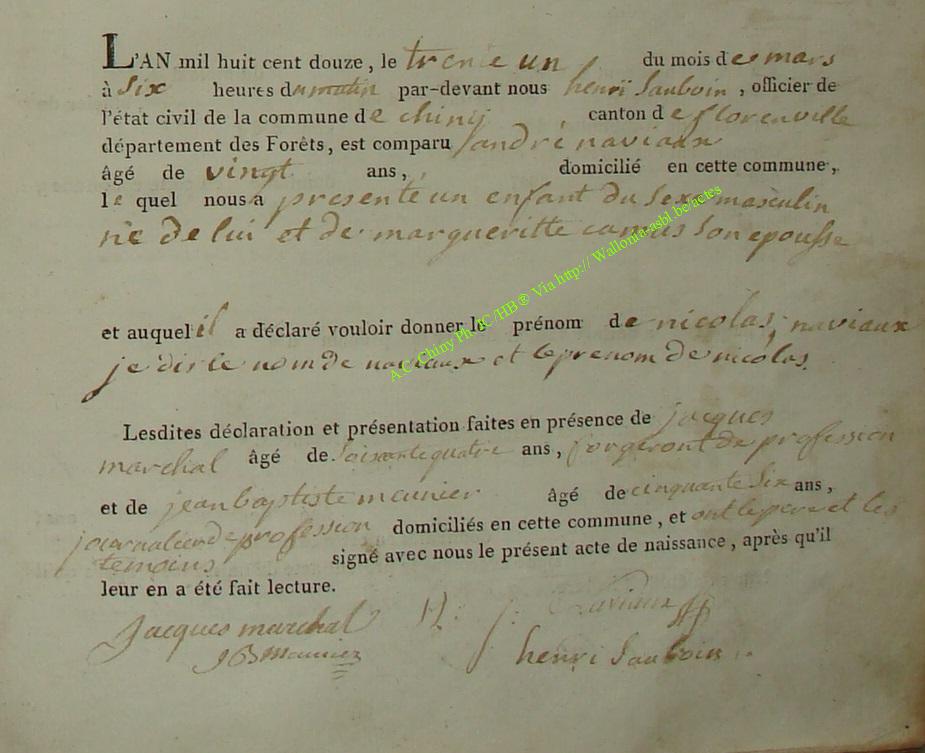 L'AN mil huit cent douze, le trente un du mois de mars
à Six heures du matin par-devant nous henri Sauboin, officier de
l'état civil de la commune de chiny, canton de florenville
département des Forêts, est comparu andré naviaux
âgé de vingt ans, domicilié en cette commune,
le quel nous a presente un enfant du Sexe masculin
né de lui et de margueritte camus Son epousse
et auquel il a déclaré vouloir donner le prénom de nicolas, naviaux
je dis le nom de naviaux et le prenom de nicolas.
Lesdites déclaration et présentation faites en présence de jacques
marchal âgé de Soixante quatre ans, forgeront de profession
et de jean baptiste meunier âgé de cinquante Six ans,
journalier de profession domiciliés en cette commune, et ont le pere et les
temoins signé avec nous le présent acte de naissance, après qu'il
leur en a été fait lecture.
Jacques marchal
JB Meunier
henri Sauboin
A.C. Chiny Ph. JC /HB® Via http:// Wallonia-asbl.be/actes